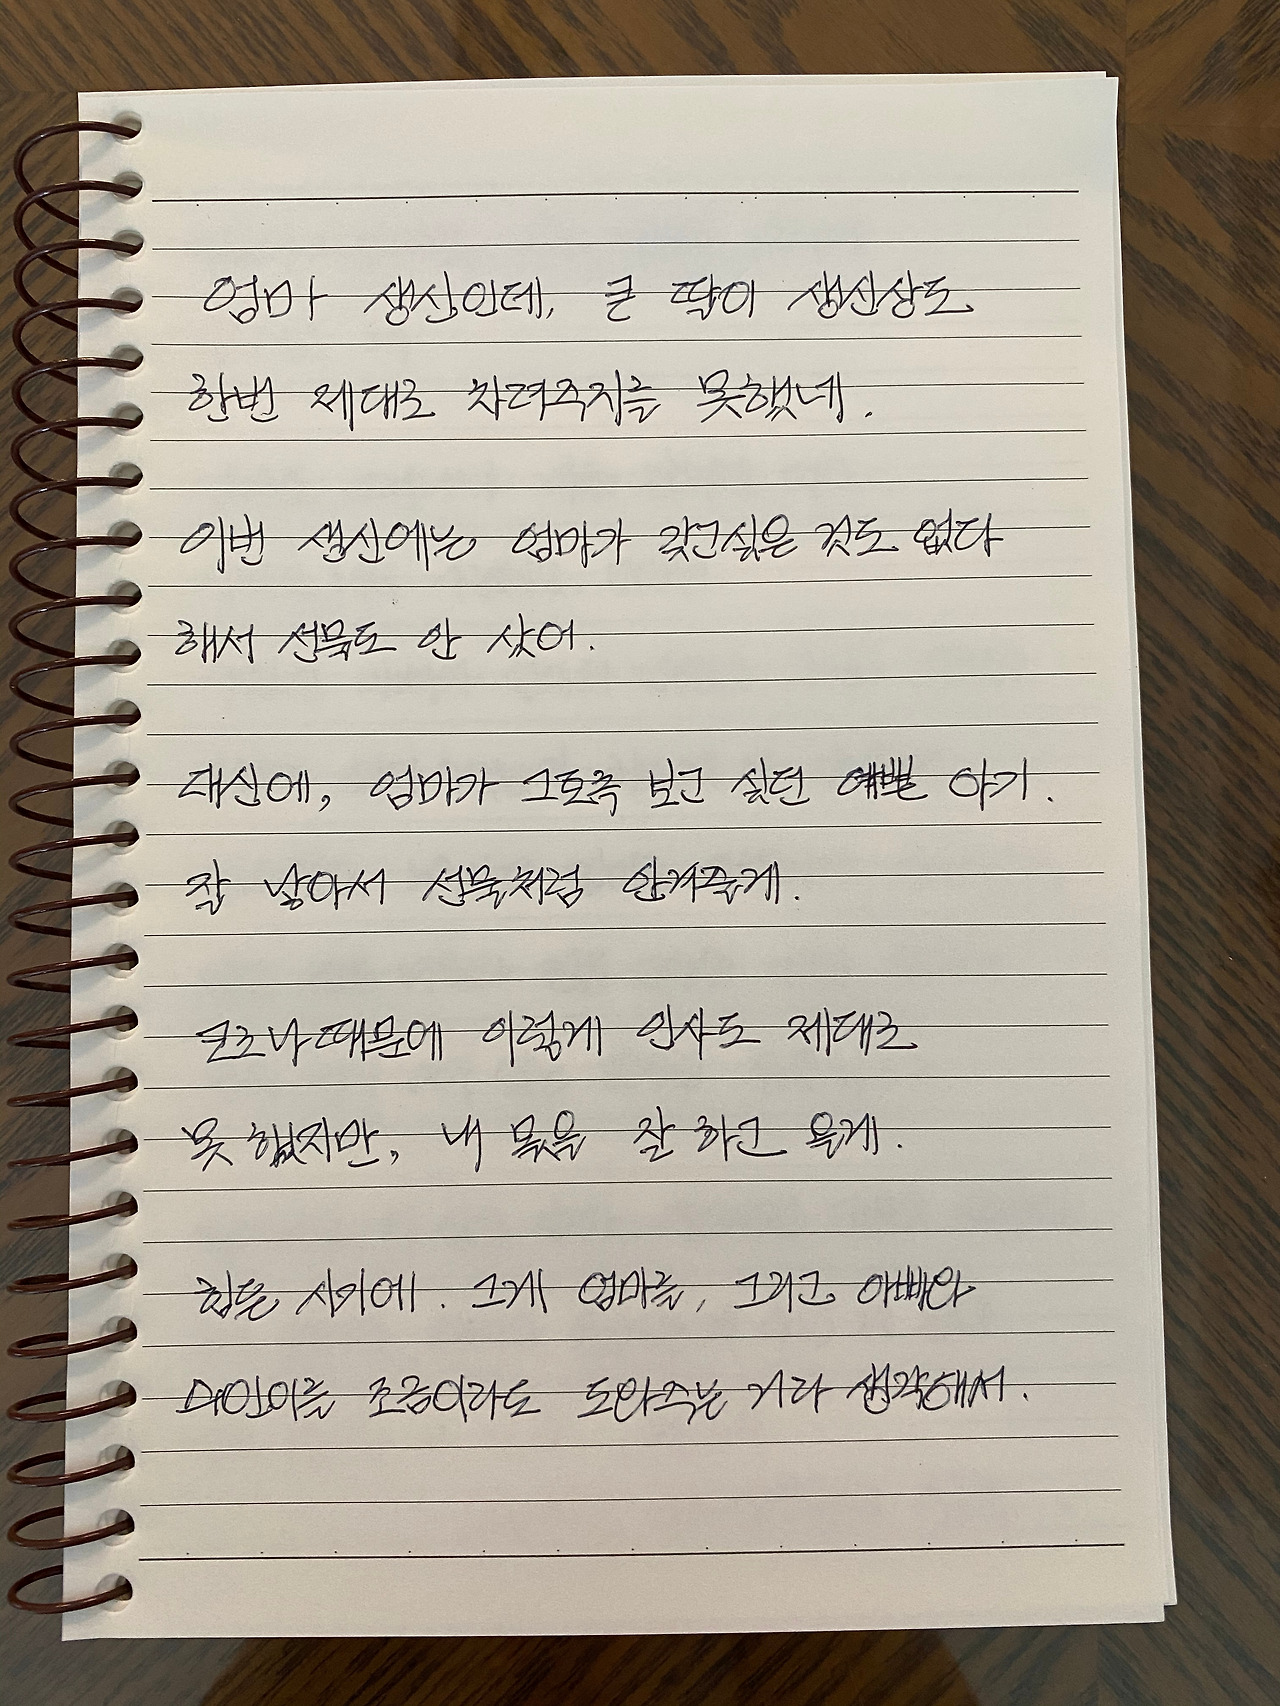 엄마 생신인데, 큰 딸이 생신상도
한번 제대로 차려주지를 못했네.
이번 생신에는 엄마가 갖고싶은 것도 없다
해서 선물도 안 샀어.
대신에, 엄마가 그토록 보고 싶던 예쁜 아기.
잘 낳아서 선물처럼 안겨줄게.
코로나때문에 이렇게 인사도 제대로
못 했지만, 내 몫을 잘 하고 올게.
힘든 시기에. 그게 엄마를, 그리고 아빠와
조금이라도 도와주는 거라 생각해서.